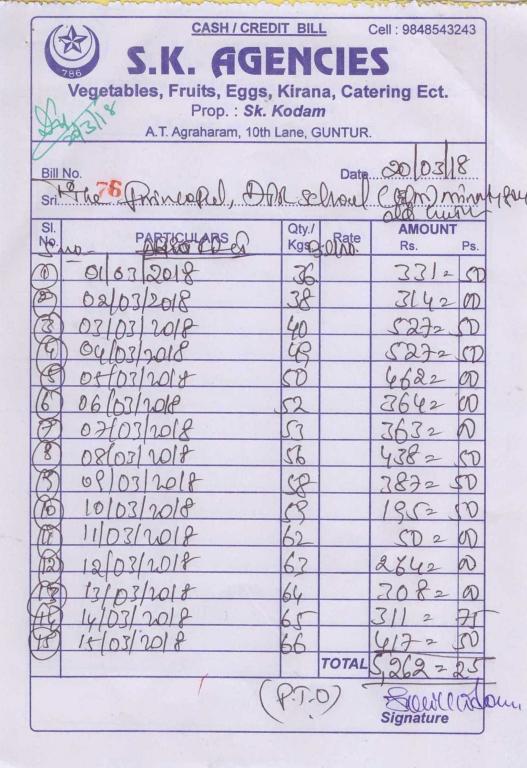 CASH / CREDIT BILL Cell : 9848543243
786
S.K. AGENCIES
Vegetables, Fruits, Eggs, Kirana, Catering Ect.
Prop. : Sk. Kodam
A.T. Agraharam, 10th Lane, GUNTUR.
20/3/18
Bill No. 76 Date 20/03/18
Sri. The Principal, school
Sl. No. PARTICULARS Qty./ Kgs. Rate AMOUNT Rs. Ps.
S.no. Bill No.
1 01/03/2018 36 331= 50
2 02/03/2018 38 314= 00
3 03/03/2018 40 527= 50
4 04/03/2018 49 527= 50
5 05/03/2018 50 462= 00
6 06/03/2018 52 364= 00
7 07/03/2018 53 363= 00
8 08/03/2018 56 438= 50
9 09/03/2018 58 387= 50
10 10/03/2018 59 195= 50
11 11/03/2018 62 50= 00
12 12/03/2018 63 264= 00
13 13/03/2018 64 308= 00
14 14/03/2018 65 311= 75
15 15/03/2018 66 417= 50
TOTAL 5,262=25
(P.T.O)
Signature